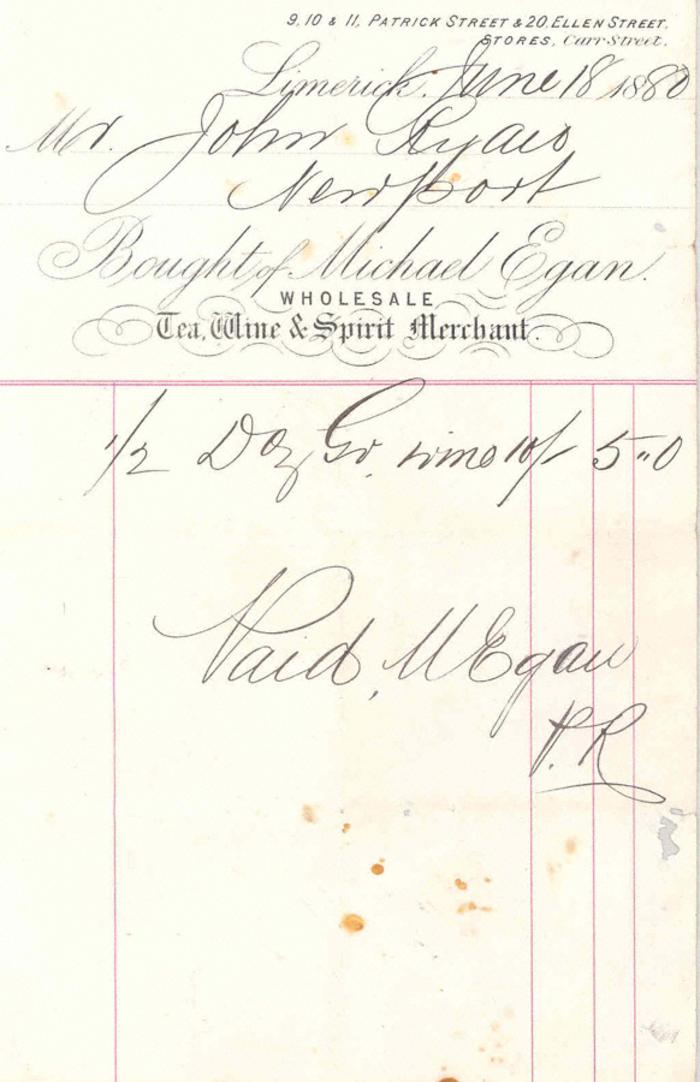 9, 10 & 11, PATRICK STREET & 20, ELLEN STREET,
STORES, Carr Street.
Limerick, June 18 1880
Mr. John Ryan
Newport
Bought of Michael Egan.
WHOLESALE
Tea, Wine & Spirit Merchant.
1/2 Doz Gr. wine 10/- 5"0
Paid, M Egan
P.R